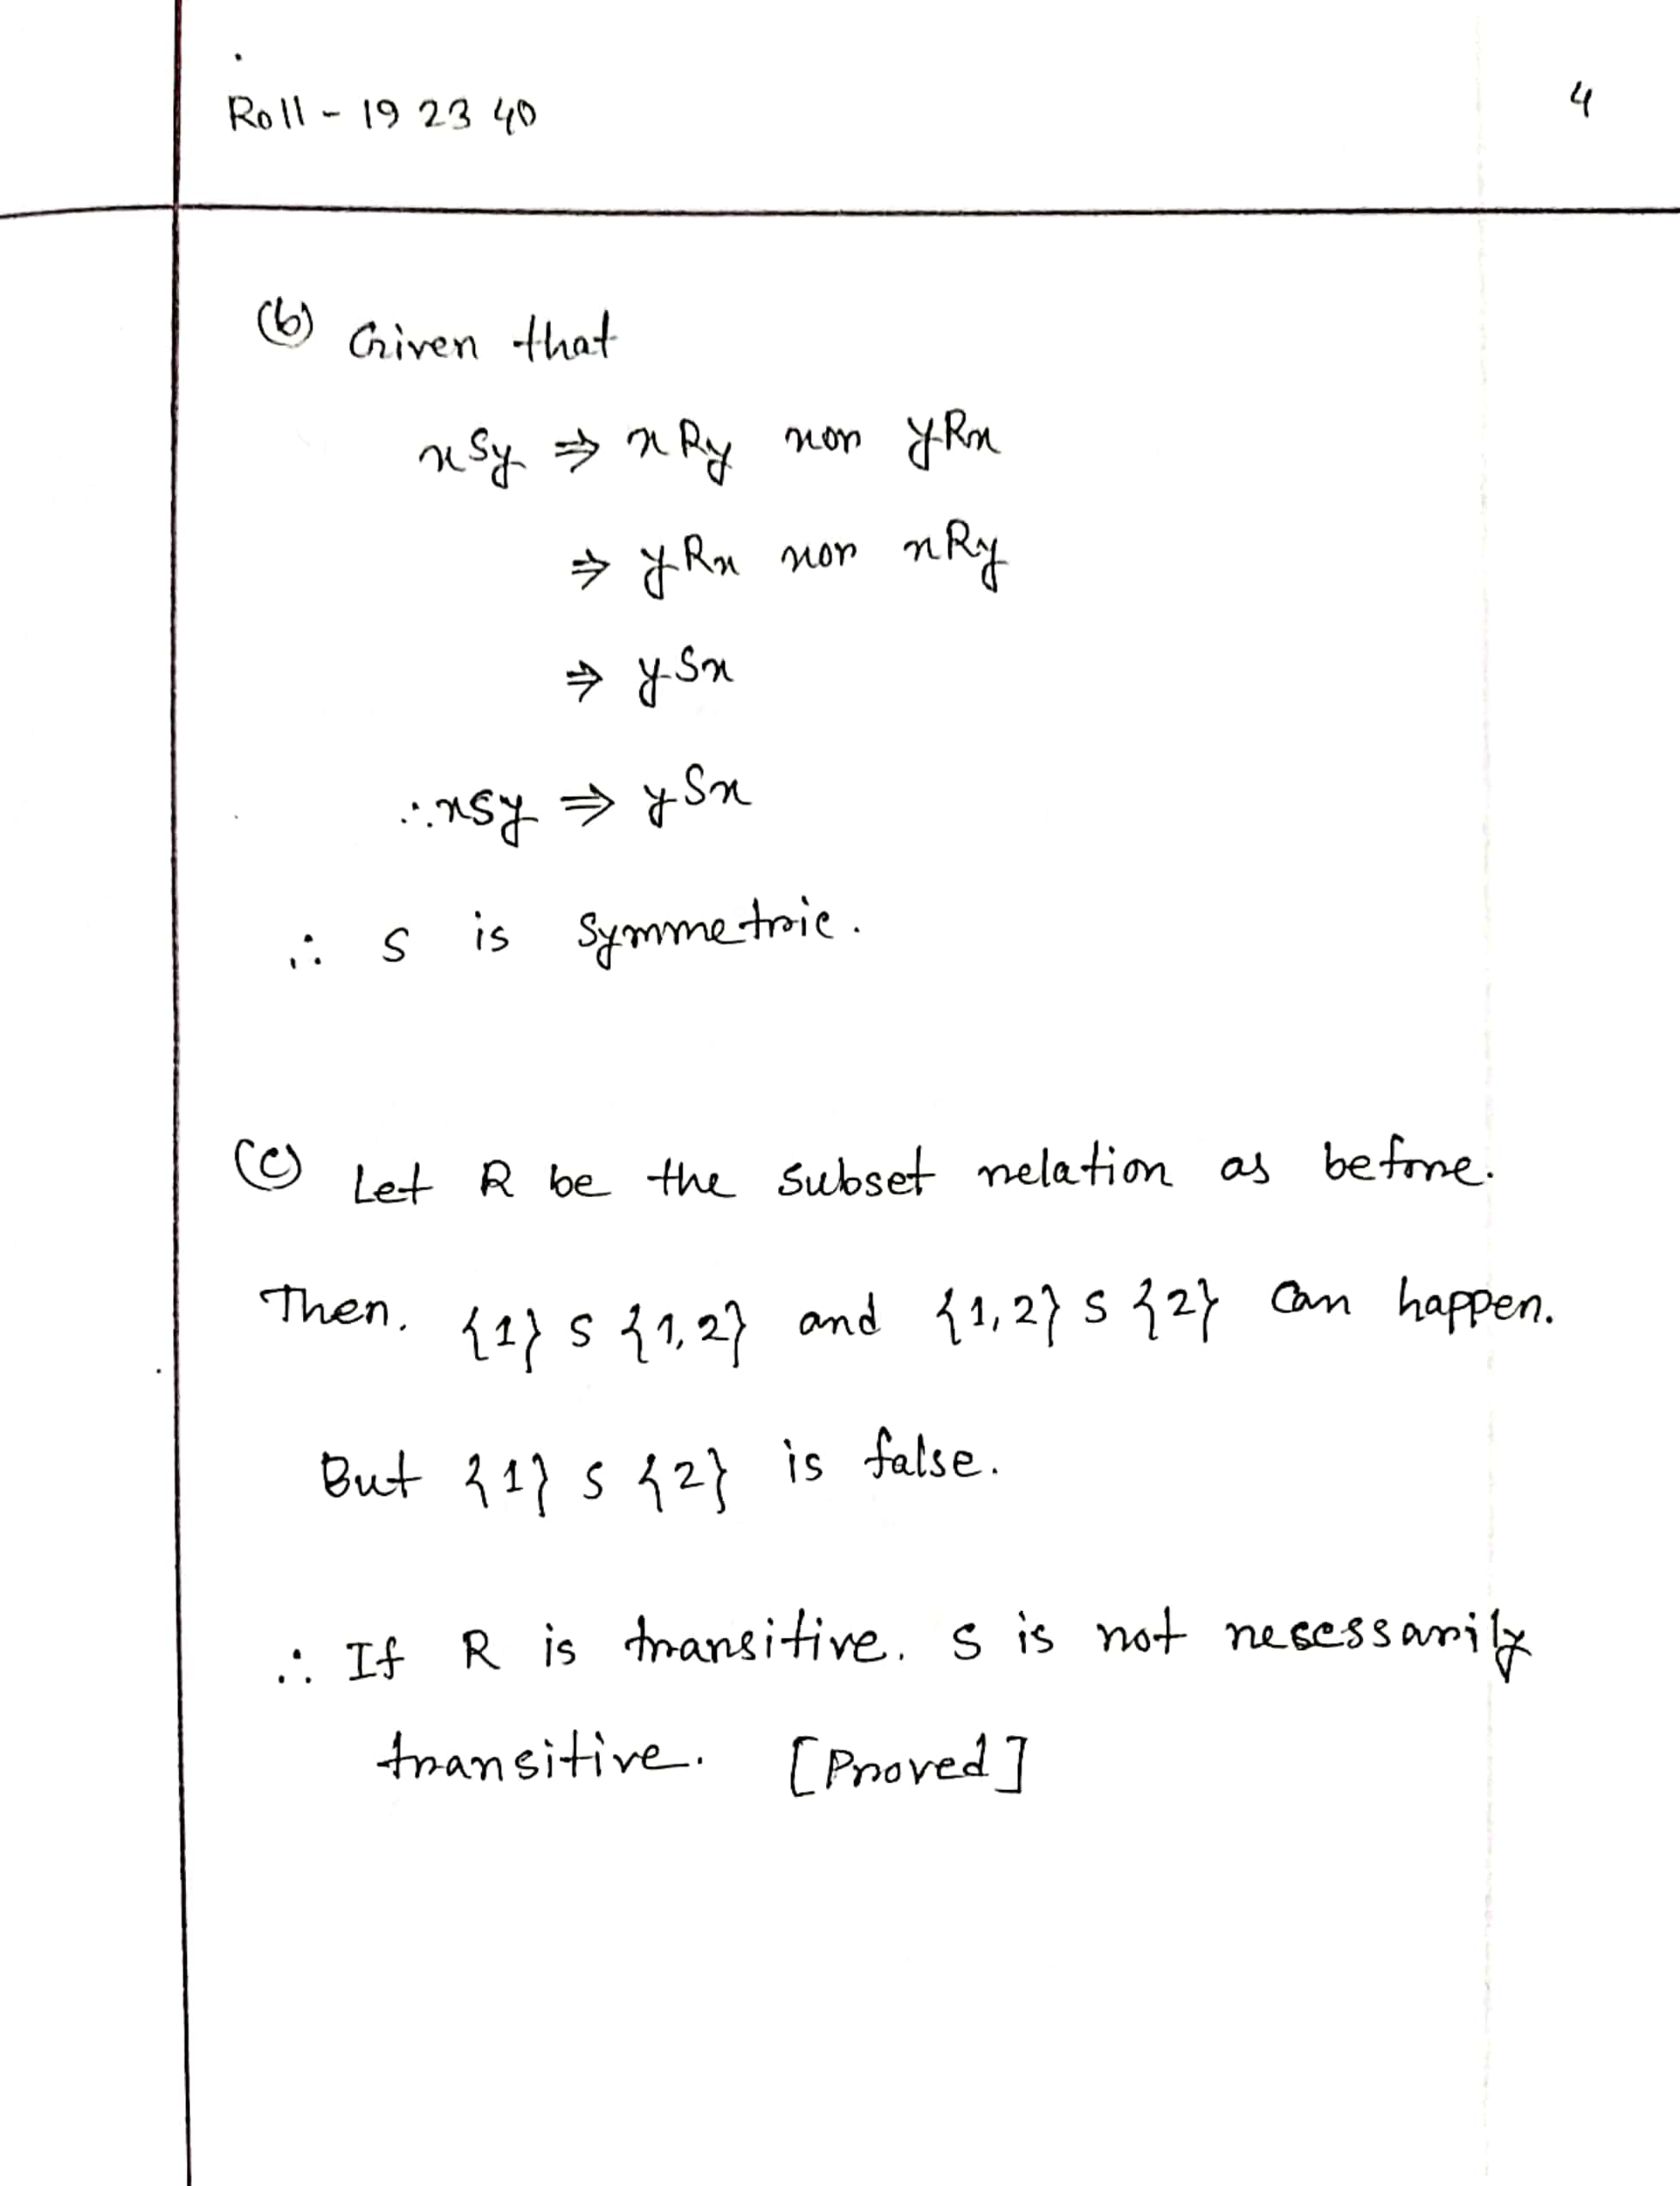 Roll - 192340
4
(b) Given that
xSy ⇒ xRy xor yRx
⇒ yRx xor xRy
⇒ ySx
∴ xSy ⇒ ySx
∴ S is symmetric.
(c) Let R be the subset relation as before.
Then. {1} S {1,2} and {1,2} S {2} can happen.
But {1} S {2} is false.
∴ If R is transitive. S is not necessarily
transitive. [Proved]